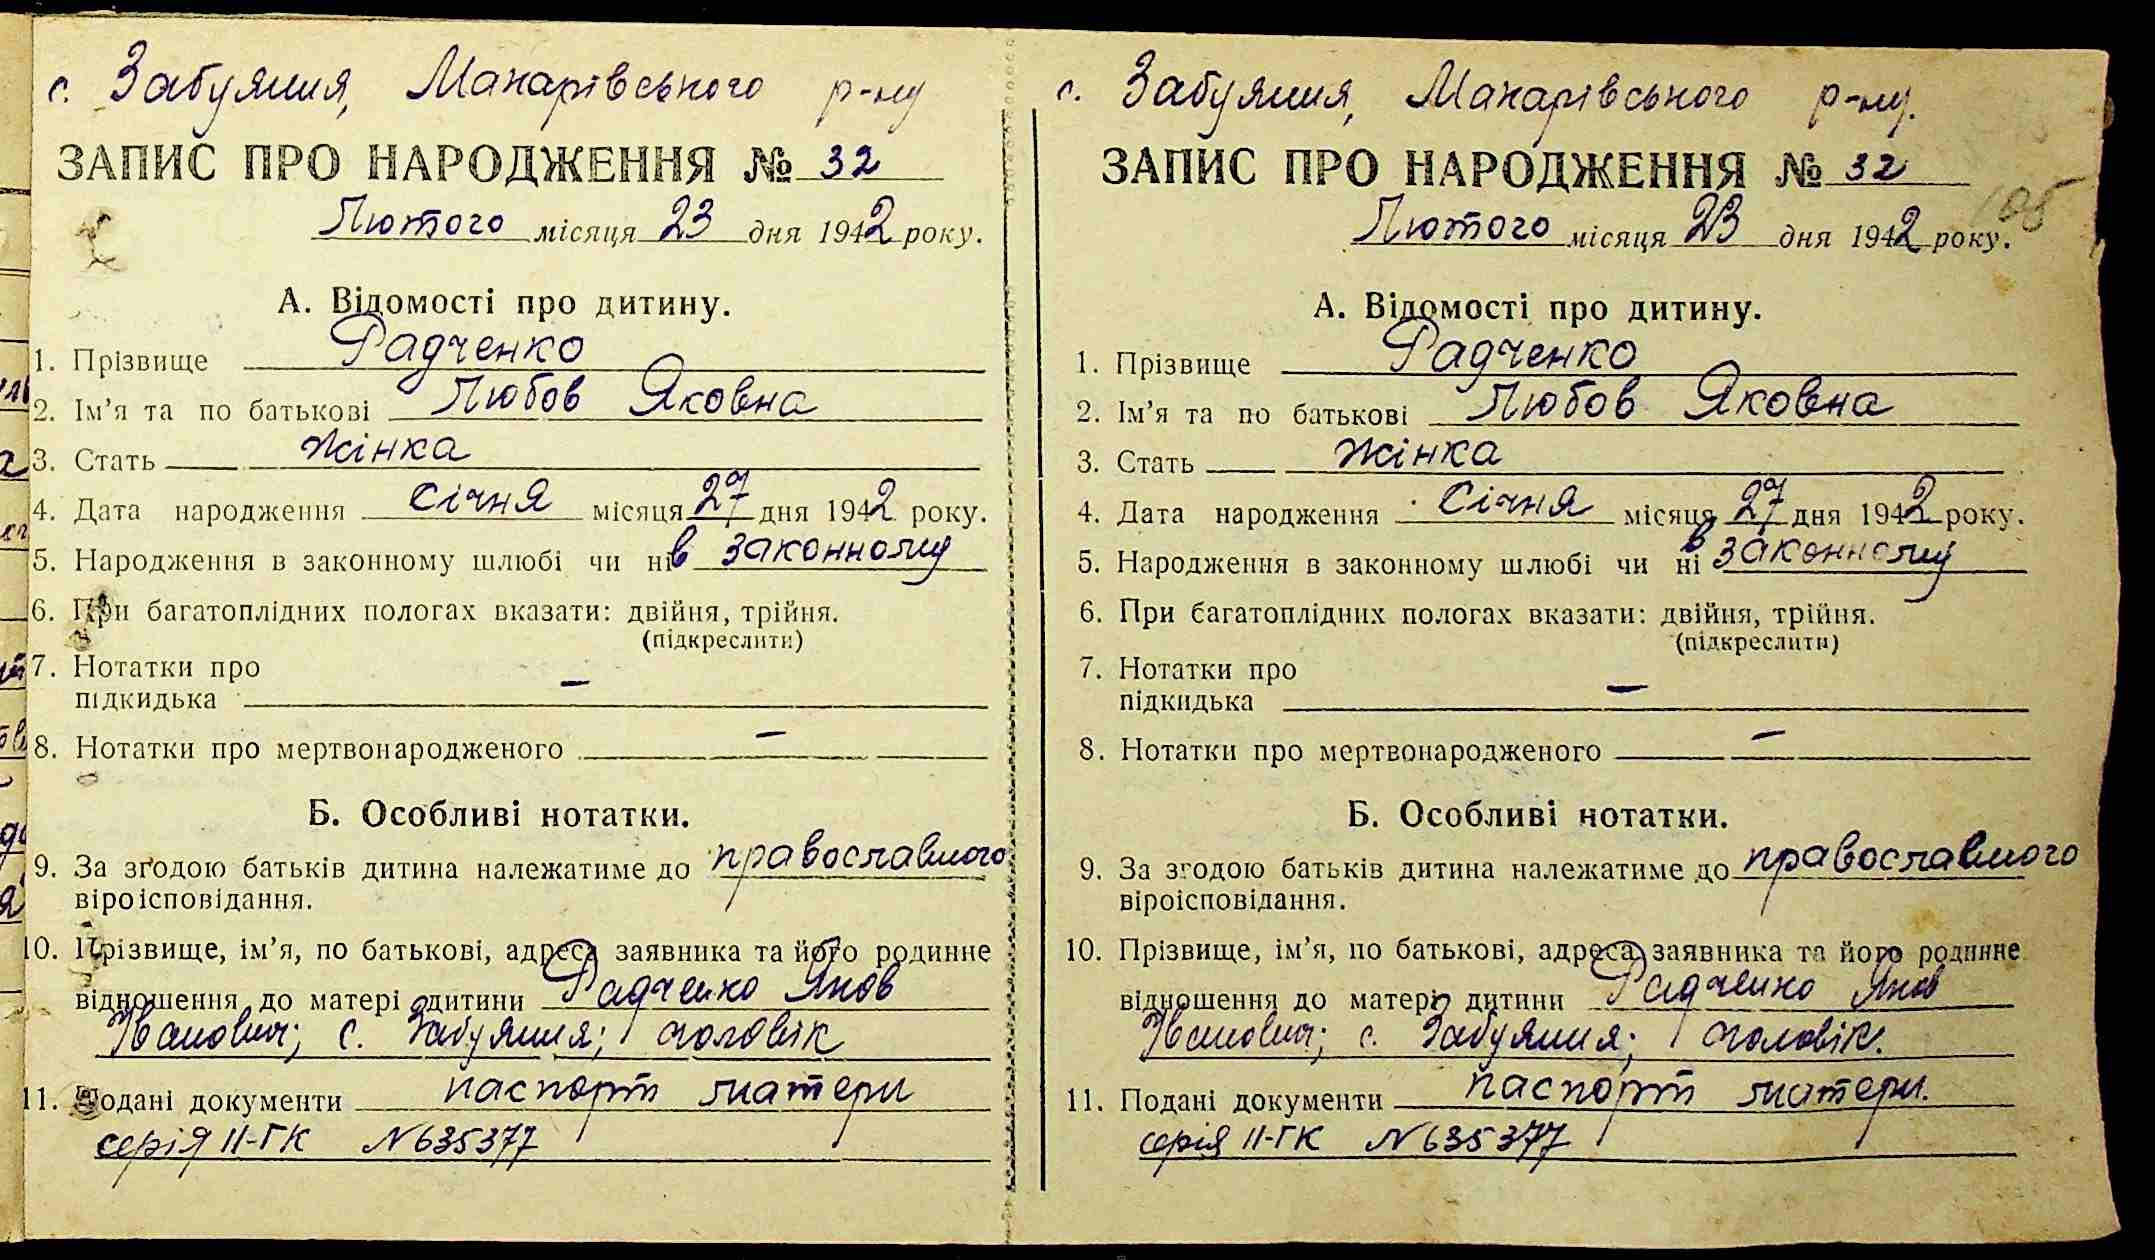 с. Забуяння, Макарівського р-ну
ЗАПИС ПРО НАРОДЖЕННЯ № 32
Лютого місяця 23 дня 1942 року.
А. Відомості про дитину.
1. Прізвище Радченко
2. Ім’я та по батькові Любов Яковна
3. Стать жінка
4. Дата народження Січня місяця 27 дня 1942 року.
5. Народження в законному шлюбі чи ні в законному
6. При багатоплідних пологах вказати: двійня, трійня.
(підкреслити)
7. Нотатки про
підкидька –
8. Нотатки про мертвонародженого –
Б. Особливі нотатки.
9. За згодою батьків дитина належатиме до православного
віроісповідання.
10. Прізвище, ім’я, по батькові, адреса заявника та його родинне
відношення до матері дитини Радченко Яков
Іванович; с. Забуяння; чоловік
11. Подані документи паспорт матери
серія II-ГК N 635377
с. Забуяння, Макарівського р-ну.
ЗАПИС ПРО НАРОДЖЕННЯ № 32
105
Лютого місяця 23 дня 1942 року.
А. Відомості про дитину.
1. Прізвище Радченко
2. Ім’я та по батькові Любов Яковна
3. Стать жінка
4. Дата народження Січня місяця 27 дня 1942 року.
5. Народження в законному шлюбі чи ні в законному
6. При багатоплідних пологах вказати: двійня, трійня.
(підкреслити)
7. Нотатки про
підкидька –
8. Нотатки про мертвонародженого –
Б. Особливі нотатки.
9. За згодою батьків дитина належатиме до православного
віроісповідання.
10. Прізвище, ім’я, по батькові, адреса заявника та його родинне
відношення до матері дитини Радченко Яков
Іванович; с. Забуяння; чоловік.
11. Подані документи паспорт матери.
серія II-ГК N 635377